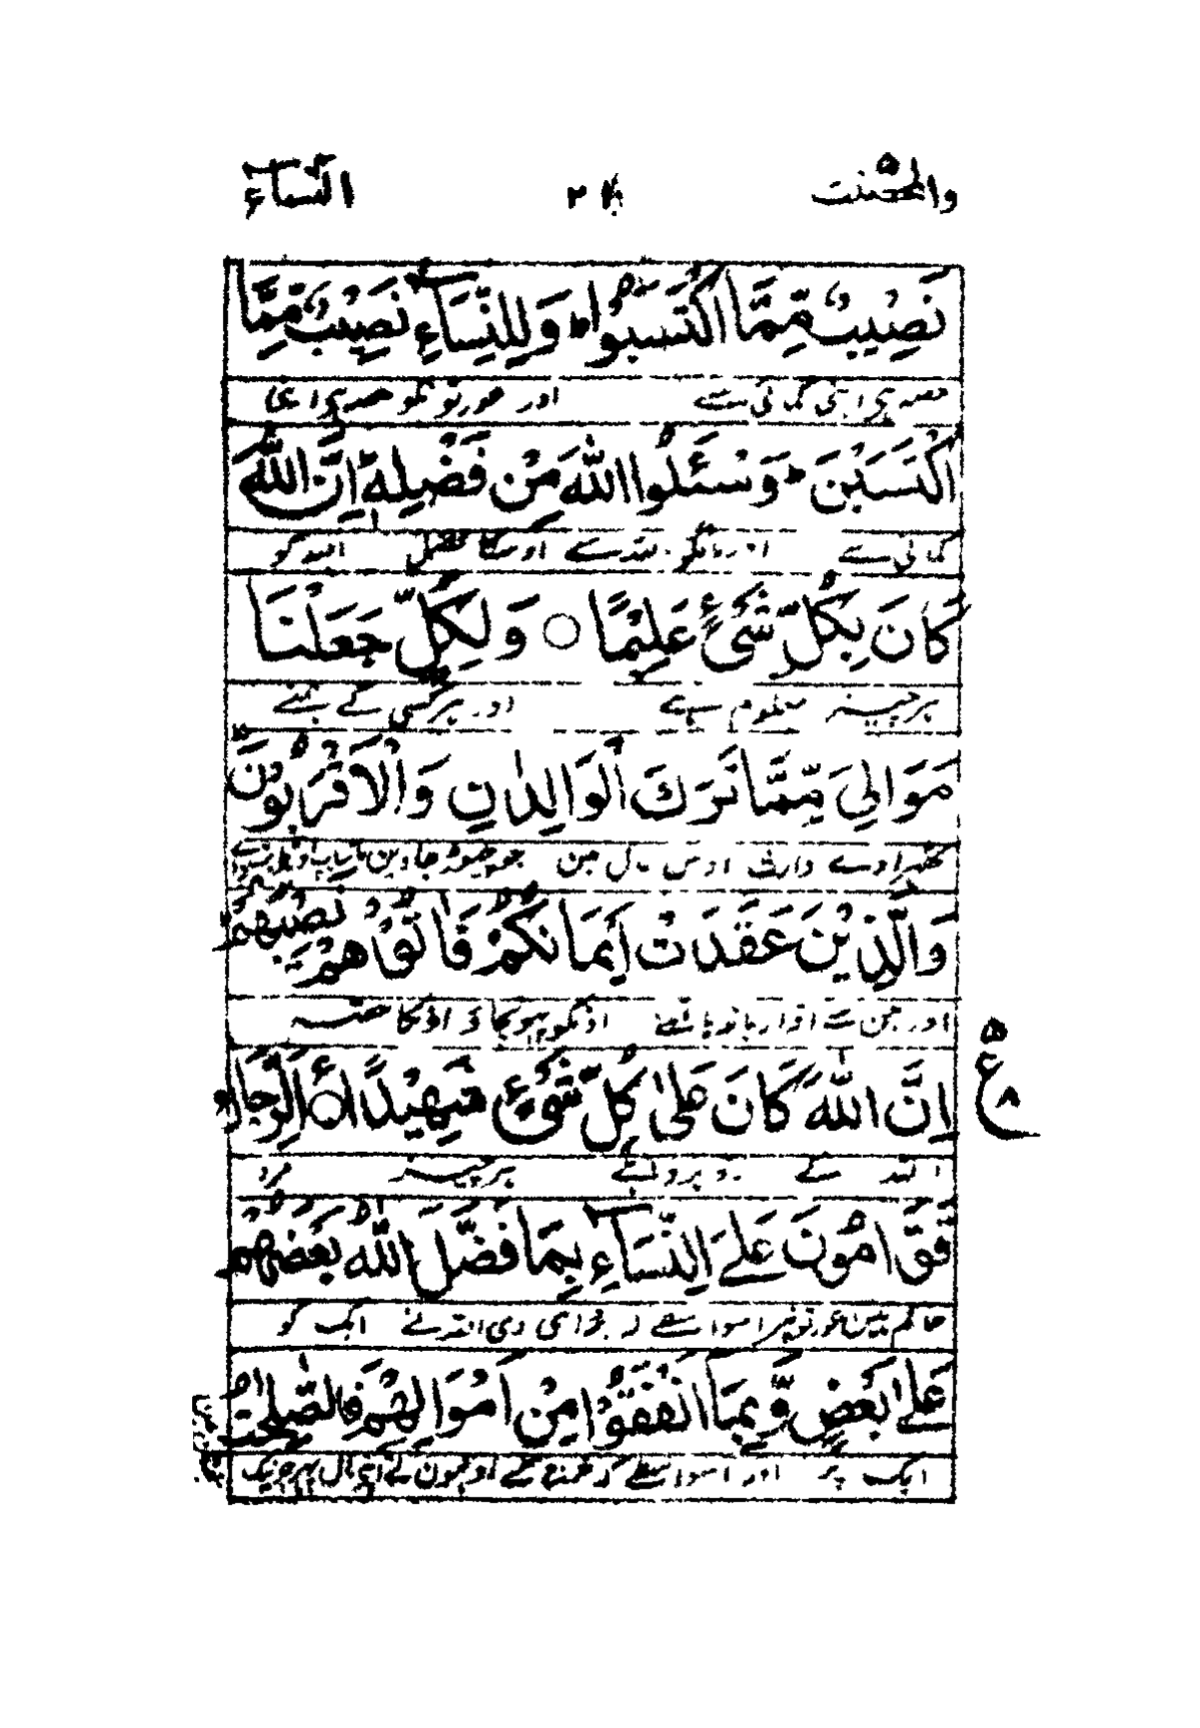 والمحصنت ٥ النسآء
نَصِيْبٌ مِّمَّا اكْتَسَبُوْا ؕ وَلِلنِّسَآءِ نَصِيْبٌ مِّمَّا
اپنی کمائی سے اور عورتونکو حصہ ہی اپنی
اكْتَسَبْنَ ؕ وَسْـَٔلُوا اللّٰهَ مِنْ فَضْلِهٖ ؕ اِنَّ اللّٰهَ
کمائی سے اور مانگو اللہ سے اوسکا فضل اللہ کو
كَانَ بِكُلِّ شَیْءٍ عَلِيْمًا ○ وَلِكُلٍّ جَعَلْنَا
ہرچیز معلوم ہے اور ہر کسی کے
مَوَالِیَ مِمَّا تَرَكَ الْوَالِدٰنِ وَالْاَقْرَبُوْنَ ؕ
ٹھہرا دے وارث اوس مال مین جو چھوڑ جاوین
وَالَّذِيْنَ عَقَدَتْ اَيْمَانُكُمْ فَاٰتُوْهُمْ نَصِيْبَهُمْ
اور جن سے اقرار باندہا اونکو پہونچاؤ اونکا حصہ
اِنَّ اللّٰهَ كَانَ عَلٰی كُلِّ شَیْءٍ شَهِيْدًا ○ اَلرِّجَالُ
ع ٥ ٨
اللہ کے روبرو ہے ہرچیز مرد
قَوّٰمُوْنَ عَلَی النِّسَآءِ بِمَا فَضَّلَ اللّٰهُ بَعْضَهُمْ
حاکم ہین عورتونپر اسواسطے کہ بڑای دی اللہ نے ایک کو
عَلٰی بَعْضٍ وَّبِمَآ اَنْفَقُوْا مِنْ اَمْوَالِهِمْ فَالصّٰلِحٰتُ
ایک پر اور اسواسطے کہ خرچ کئے اونہون نے اپنے مال پہر جو نیک